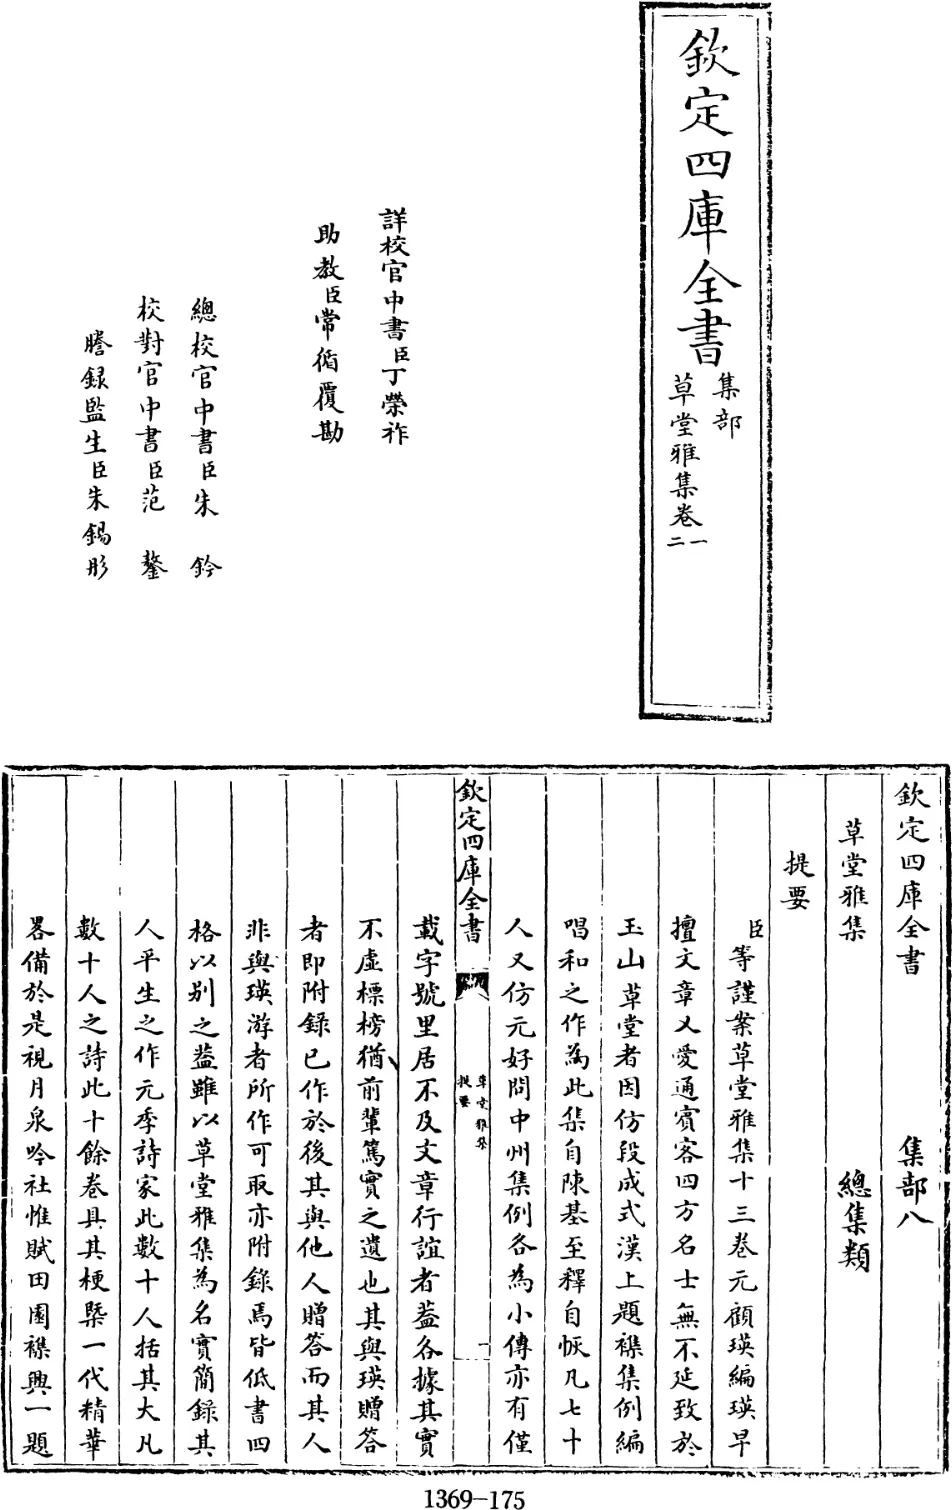 欽定四庫全書
集部
草堂雅集卷一二
詳校官中書臣丁榮祚
助教臣常循覆勘
總校官中書臣朱鈐
校對官中書臣范鏊
謄録監生臣朱錫彤
欽定四庫全書 集部八
草堂雅集 總集類
提要
臣等謹案草堂雅集十三卷元顧瑛編瑛早
擅文章又愛通賓客四方名士無不延致於
玉山草堂者因仿段成式漢上題襟集例編
唱和之作為此集自陳基至釋自恢凡七十
人又仿元好問中州集例各為小傳亦有僅
欽定四庫全書
草堂雅集
提要
一
載字號里居不及文章行誼者葢各據其實
不虛標榜猶前輩篤實之遺也其與瑛贈答
者即附録己作於後其與他人贈答而其人
非與瑛游者所作可取亦附錄焉皆低書四
格以别之葢雖以草堂雅集為名實簡錄其
人平生之作元季詩家此數十人括其大凡
數十人之詩此十餘卷具其梗槩一代精華
畧備於是視月泉吟社惟賦田園襍興一題
1369-175